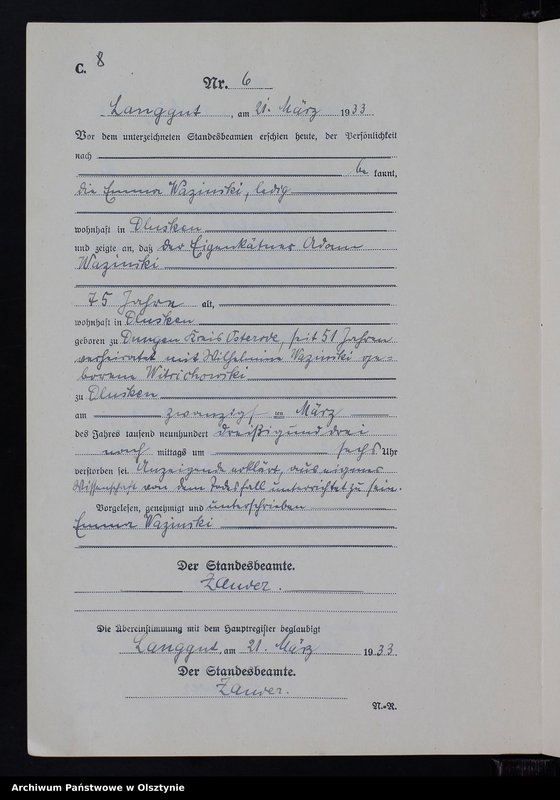 C. 8
Nr. 6
Langgut, am 21. März 1933
Vor dem unterzeichneten Standesbeamten erschien heute, der Persönlichkeit
nach
be kannt,
die Emma Wazinski, ledig
wohnhaft in Dlusken
und zeigte an, daß der Eigenkätner Adam
Wazinski
75 Jahre alt,
wohnhaft in Dlusken
geboren zu Dungen Kreis Osterode, seit 51 Jahren
verheiratet mit Wilhelmine Wazinski ge-
borene Witrichowski
zu Dlusken
am zwanzigsten März
des Jahres tausend neunhundert dreißigunddrei
nach mittags um sechs Uhr
verstorben sei. Anzeigende erklärt, aus eigener
Wissenschaft von dem Todesfall unterrichtet zu sein.
Vorgelesen, genehmigt und unterschrieben
Emma Wazinski
Der Standesbeamte.
Zander.
Die Übereinstimmung mit dem Hauptregister beglaubigt
Langgut, am 21. März 1933.
Der Standesbeamte.
Zander.
N.=R.
Archiwum Państwowe w Olsztynie